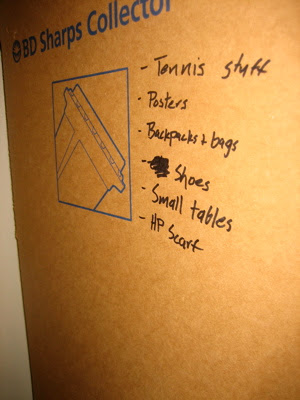 BD Sharps Collector
- Tennis stuff
- Posters
- Backpacks + bags
- Shoes
- Small tables
- HP Scarf